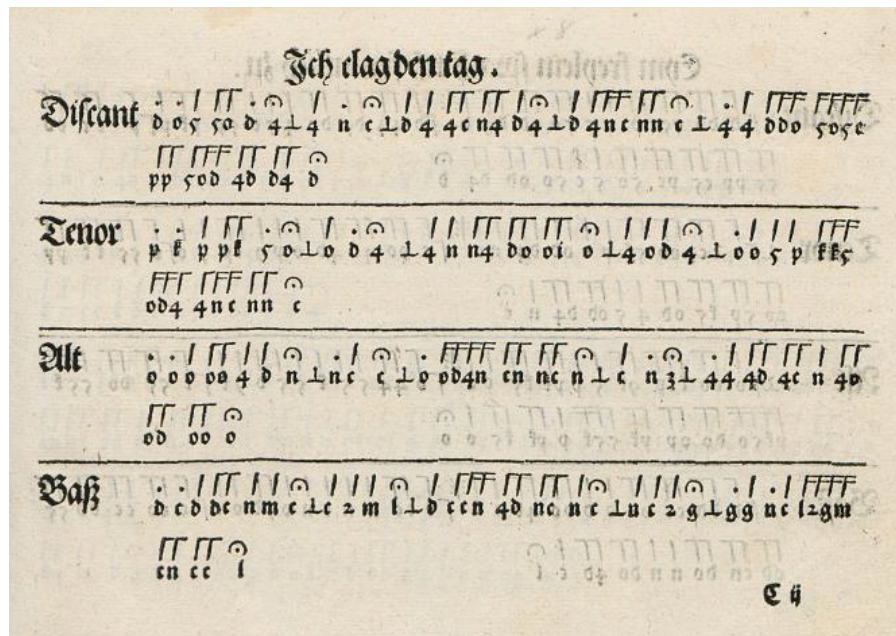 Ich clag den tag.
Discant d o 5 5o d 4 ⊥ 4 n c ⊥ d 4 4c n4 d4 ⊥ d 4nc nn c ⊥ 4 4 ddo 5o5e
pp 5od 4d d4 d
Tenor p k p pk 5 o ⊥ o d 4 ⊥ 4 n n4 do oi o ⊥ 4 o d 4 ⊥ o o 5 p kk5
od4 4nc nn c
Alt o o o oo 4 d n ⊥ n c c ⊥ o od4n cn nc n ⊥ c n 3 ⊥ 4 4 4d 4c n 4o
od oo o
Baß d c d dc n m c ⊥ c 2 m l ⊥ d ccn 4d nc n c ⊥ n c 2 g ⊥ g g n c l2gm
cn cc l
C ij